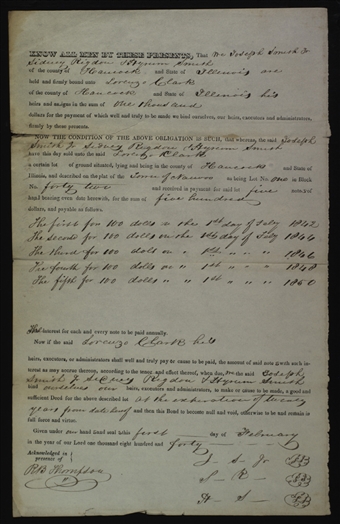 KNOW ALL MEN BY THESE PRESENTS, That we Joseph Smith Jr
Sidney Rigdon & Hyrum Smith
of the county of Hancock and State of Illinois are
held and firmly bound unto Lorenzo Clark
of the county of Hancock and State of Illinois his
heirs and assigns in the sum of One thousand
dollars for the payment of which well and truly to be made we bind ourselves, our heirs, executors and administrators,
firmly by these presents.
NOW THE CONDITION OF THE ABOVE OBLIGATION IS SUCH, that whereas, the said Joseph
Smith Jr Sidney Rigdon & Hyrum Smith
have this day sold unto the said Lorenzo Clark
a certain lot of ground situated, lying and being in the county of Hancock and State of
Illinois, and described on the plat of the Town of Nauvoo as being Lot No. one in Block
No. forty two and received in payment for said lot five notes of
hand bearing even date herewith, for the sum of five hundred
dollars, and payable as follows.
The first for 100 dolls on the 1st day of July 1842
The second for 100 dolls on the 1st day of July 1844
The third for 100 dolls on " 1st " " " 1846
The fourth for 100 dolls on " 1st " " " 1848
The fifth for 100 dolls " " 1st " " " 1850
interest for each and every note to be paid annually.
Now if the said Lorenzo Clark his
heirs, executors, or administrators shall well and truly pay or cause to be paid, the amount of said notes with such interest as may accrue thereon, according to the tenor and effect thereof, when due, we the said Joseph
Smith Jr Sidney Rigdon & Hyrum Smith
bind ourselves our heirs, executors and administrators, to make or cause to be made, a good and
sufficient Deed for the above described lot at the expiration of twenty
years from date hereof and then this Bond to become null and void, otherwise to be and remain in
full force and virtue.
Given under our hand and seal this first day of February
in the year of our Lord one thousand eight hundred and forty
Acknowledged in
presence of
R B Thompson
J - S - Jr
S - R -
H - S -